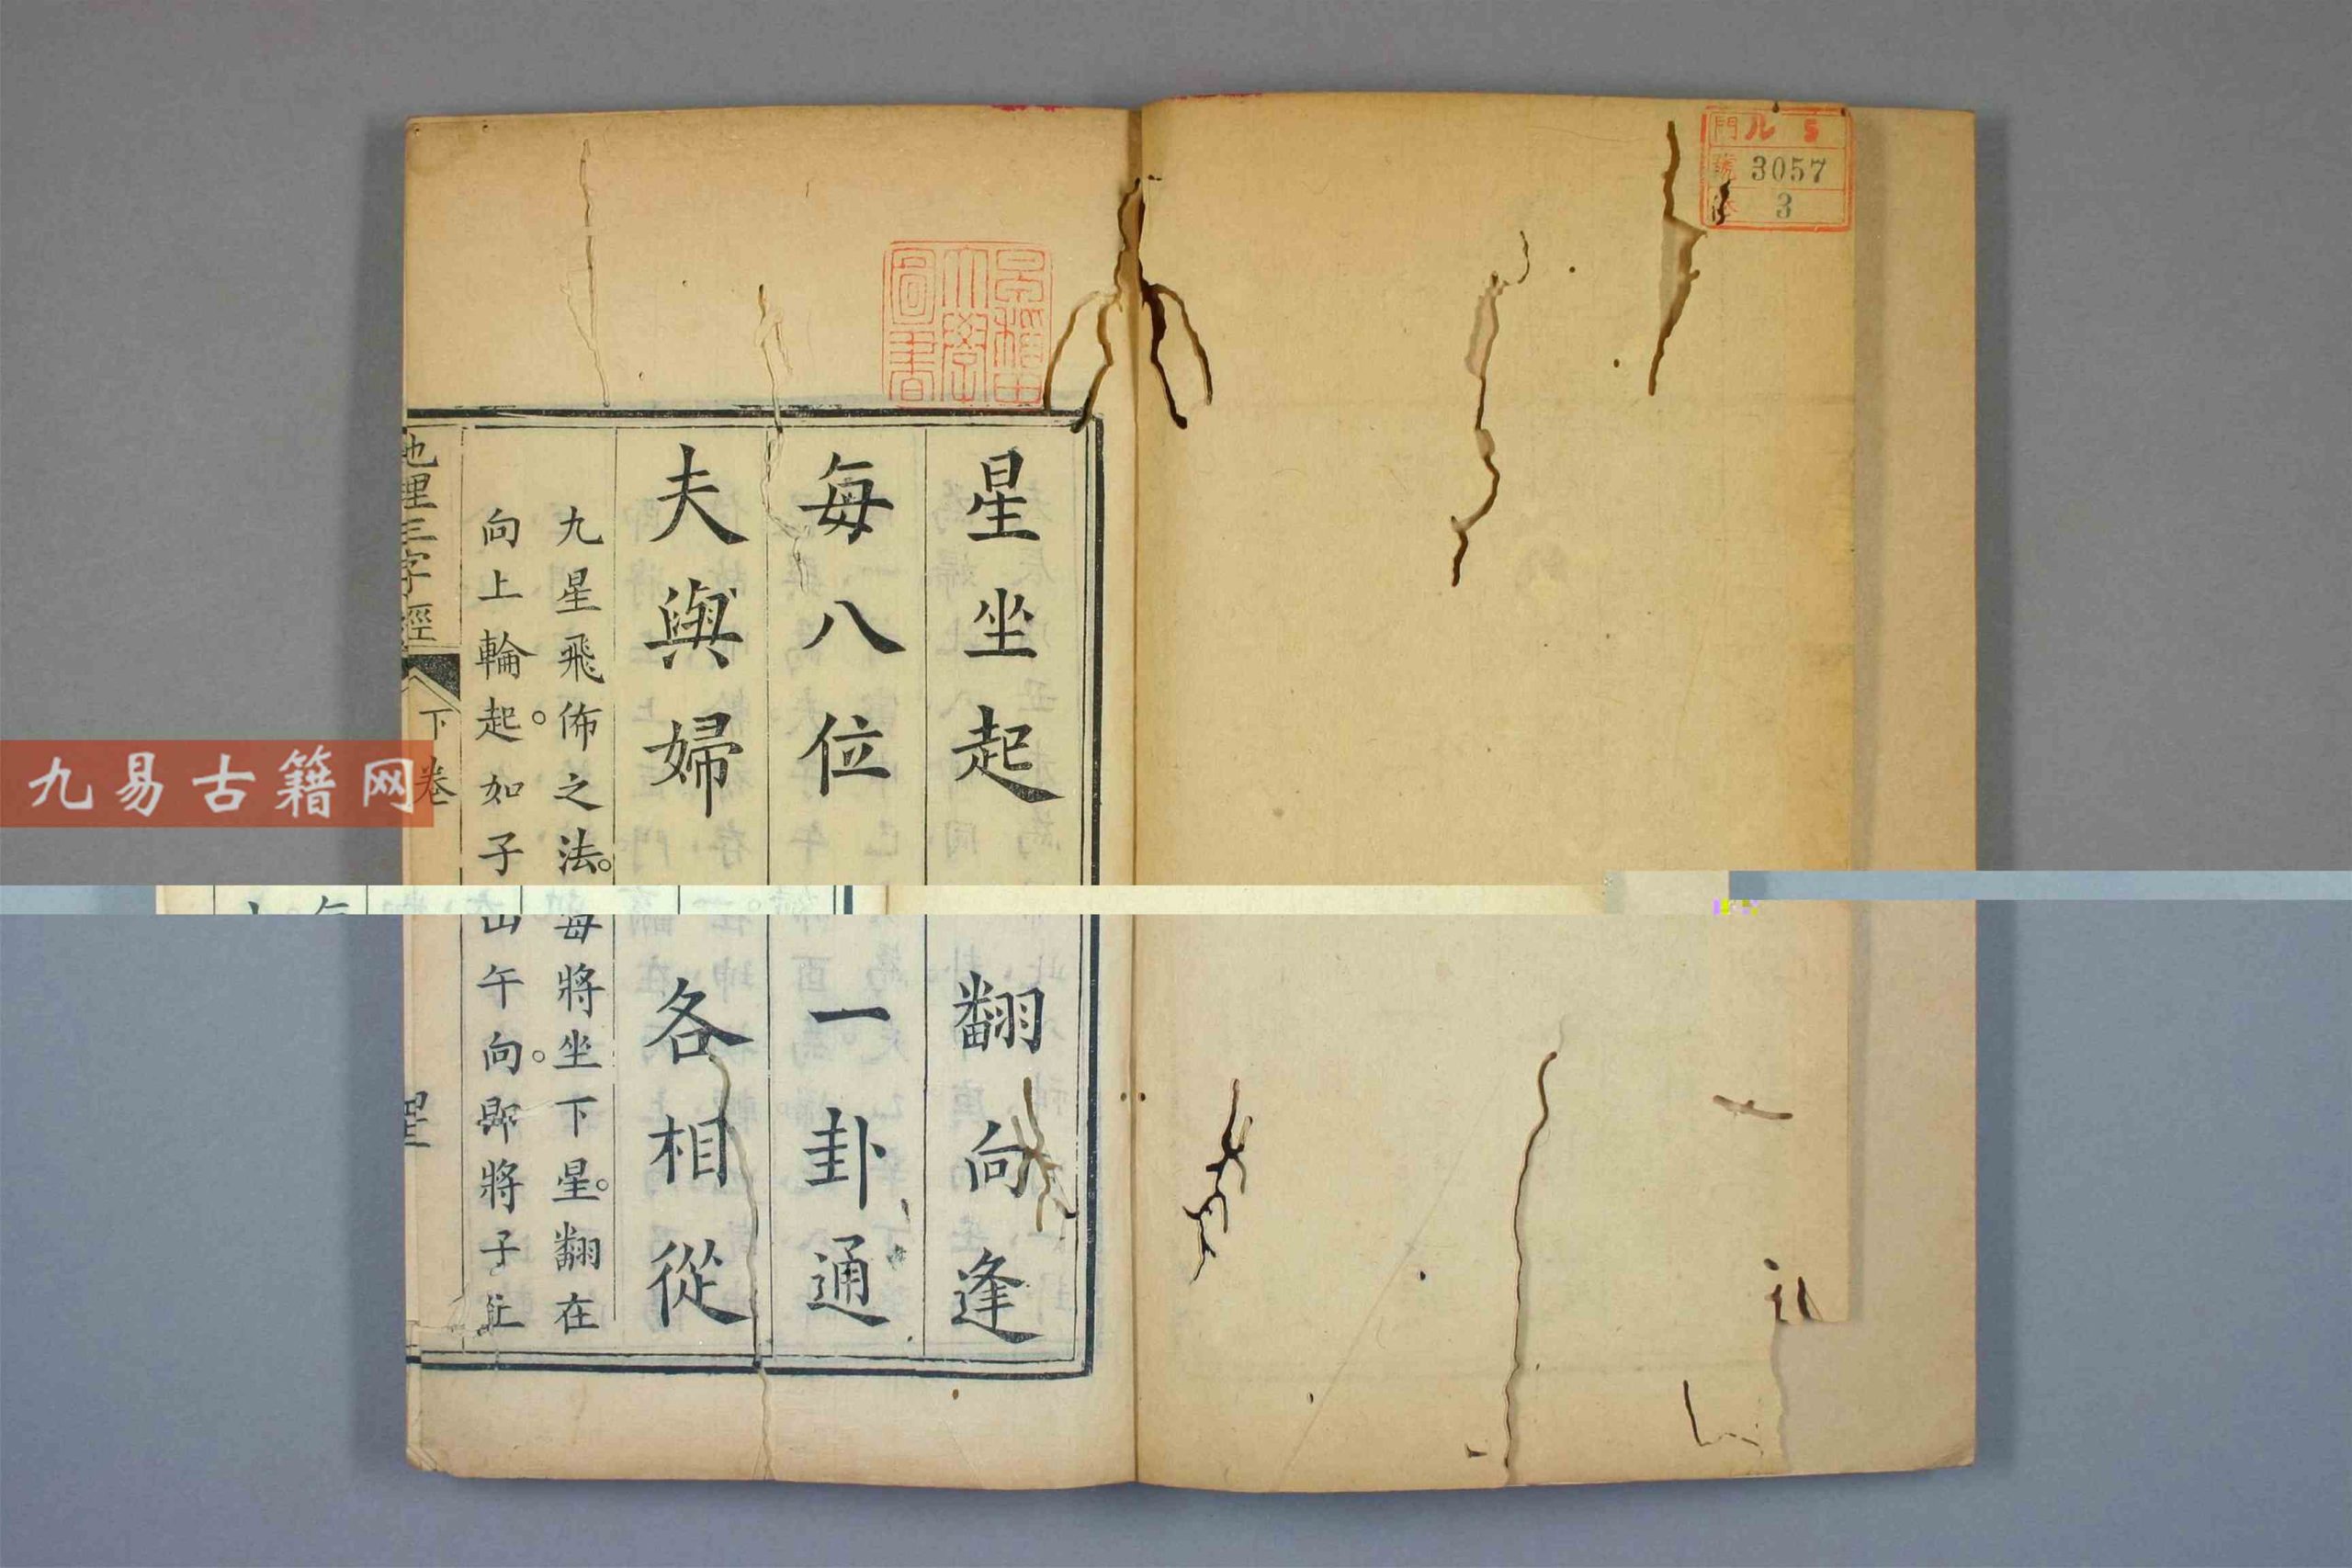 門 ル 5
號 3057
3
早稲田
大學
圖書
星坐起 翻向逢
每八位 一卦通
夫與婦 各相從
九星飛佈之法。每將坐下星。翻在
向上輪起。如子山午向。即將子山
地理三字經 下卷
九易古籍网